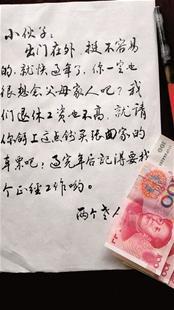 小伙子：
出门在外，挺不容易
的，就快过年了，你一定也
很想念父母家人吧？我
们退休工资也不高，就请
你领上这点钱买张回家的
车票吧！过完年后记得要找
个正经工作哟。
两个老人
100